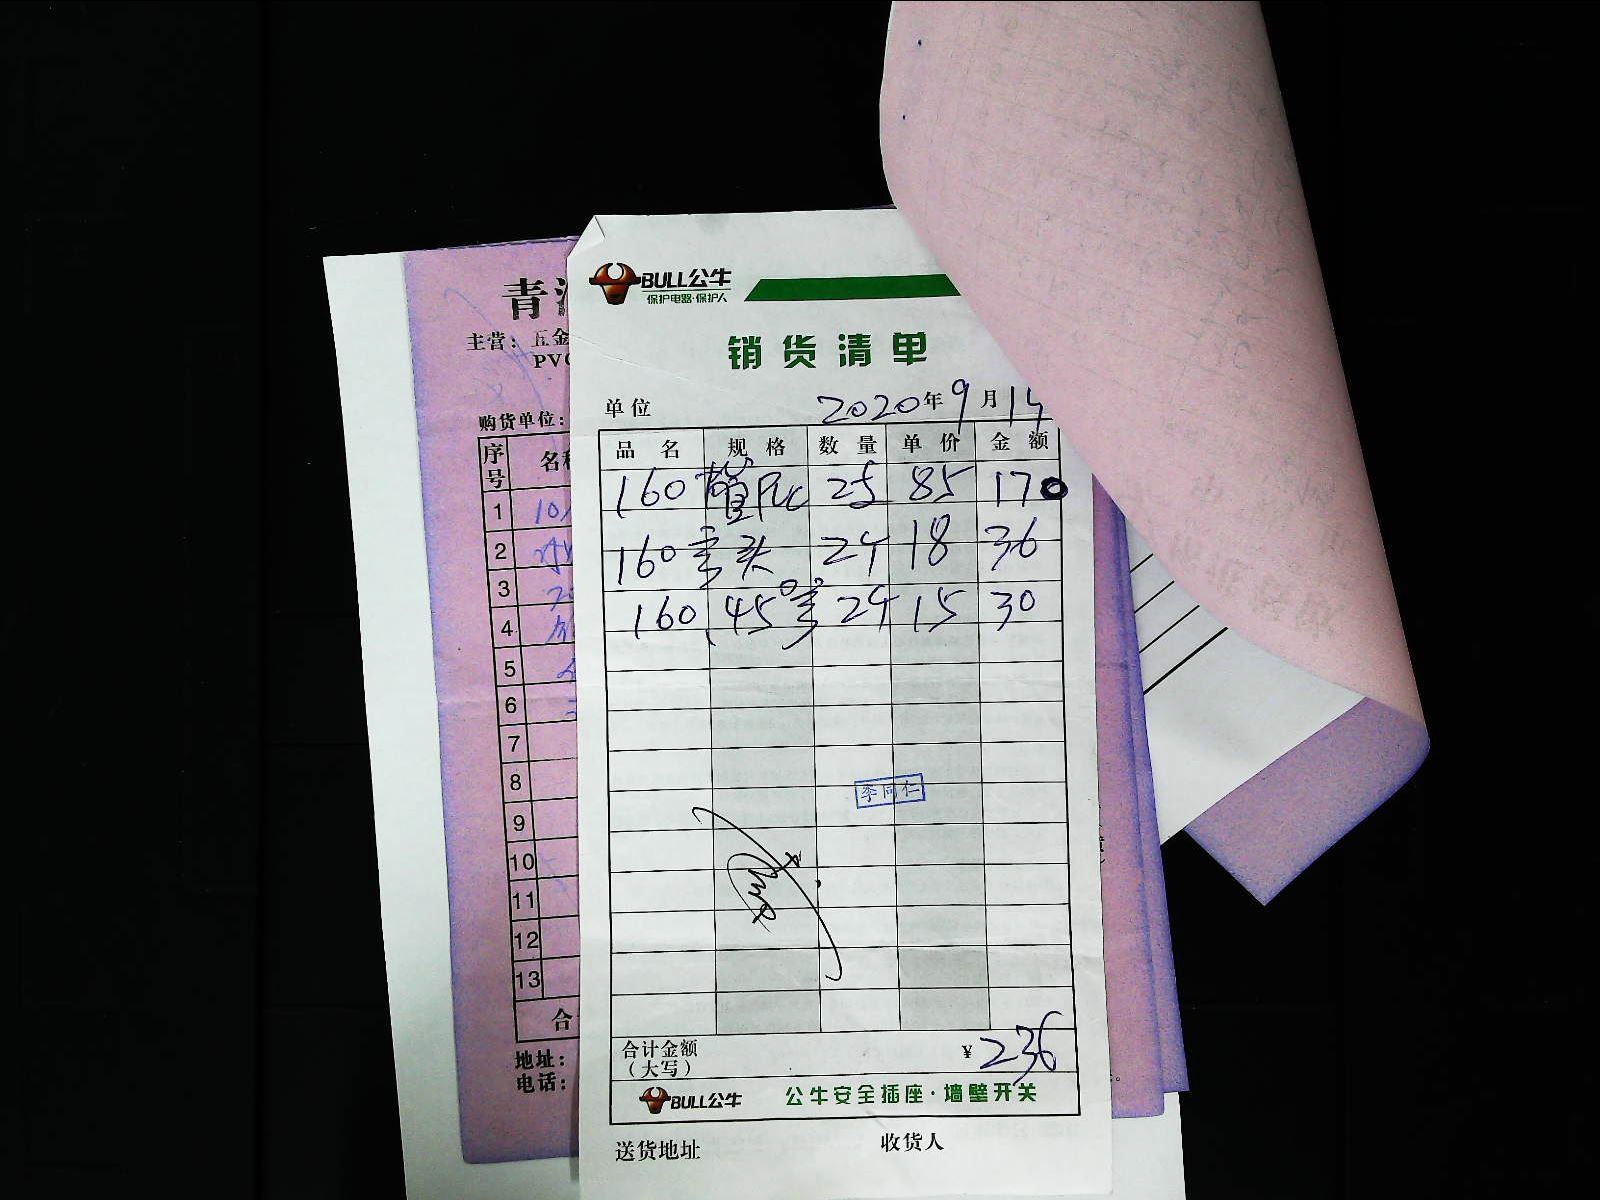 BULL公牛
保护电器·保护人
销货清单
单位 2020年9月14
品名 规格 数量 单价 金额
160 管PVC 2 85 170
160 弯头 2个 18 36
160 45°弯 2个 15 30
李同仁
合计金额
(大写) ¥236
BULL公牛 公牛安全插座·墙壁开关
送货地址 收货人
青
主营：五金
PVC
购货单位：
序号 名称
1 10
2
3
4
5
6
7
8
9
10
11
12
13
合
地址：
电话：